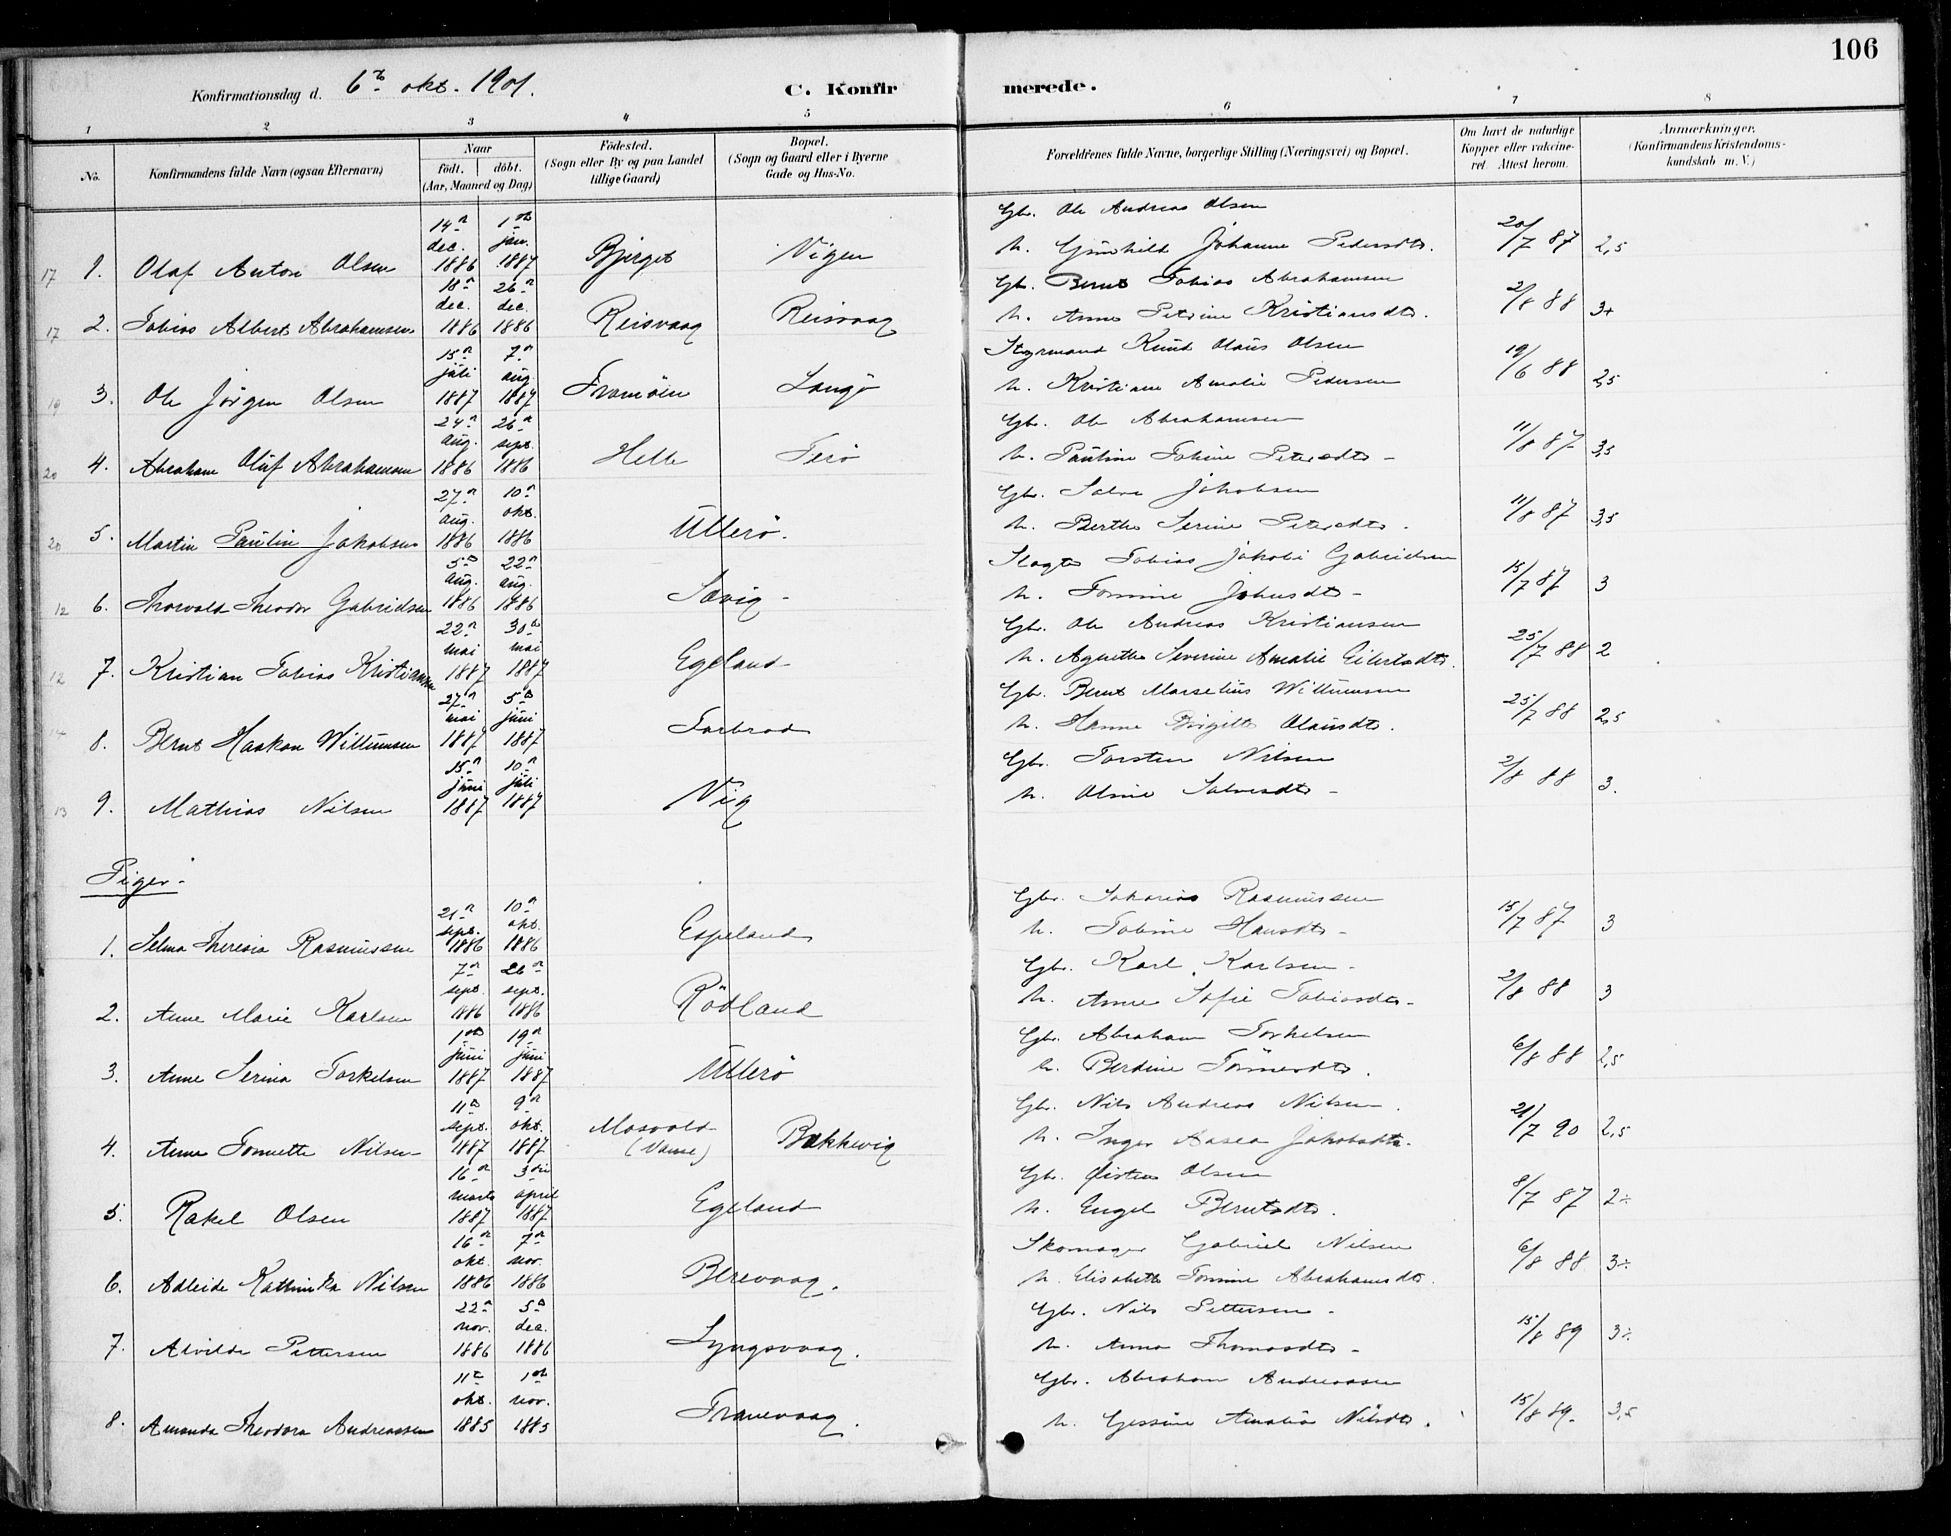 106
Konfirmationsdag d. 6te okt. 1901.
C. Konfirmerede.
1 2 3 4 5 6 7 8
No.
Konfirmandens fulde Navn (ogsaa Efternavn)
Naar
født. døbt.
(Aar, Maaned og Dag)
Fødested.
(Sogn eller By og paa Landet
tillige Gaard)
Bopæl.
(Sogn og Gaard eller i Byerne
Gade og Hus-No.
Forældrenes fulde Navne, borgerlige Stilling (Næringsvei) og Bopæl.
Om havt de naturlige
Kopper eller vakcine-
ret. Attest herom.
Anmærkninger.
(Konfirmandens Kristendoms-
kundskab m. V.)
17 1. Olaf Anton Olsen 14de dec. 1886 1ste jan. 1887 Bjerget Vigen
Gbr. Ole Andreas Olsen
h. Gunhild Johanne Pedersdtr. 20/7 87 2,5
17 2. Tobias Albert Abrahamsen 18de dec. 1886 26de dec. 1886 Reisvaag Reisvaag
Gbr. Bernt Tobias Abrahamsen
h. Anne Petrine Kristiansdtr. 2/8 88 3+
19 3. Ole Jørgen Olsen 15de juli 1887 7de aug. 1887 Langø
Styrmand Knud Olaus Olsen
h. Kristiane Amalie Pedersen 19/6 88 2,5
20 4. Abraham Oluf Abrahamsen 24de aug. 1886 26de sept. 1886 Helle Terø
Gbr. Ole Abrahamsen
h. Pauline Tobine Petersdtr. 11/8 87 3,5
20 5. Martin Paulin Jakobsen 27de aug. 1886 10de okt. 1886 Ullerø.
Gbr. Salve Jakobsen
h. Berthe Serine Petersdtr. 11/8 87 3,5
12 6. Thorvald Theodor Gabrielsen 5te aug. 1886 22de aug. 1886 Sævig
Tobias Jakobi Gabrielsen
h. Tomine Johnsdtr. 15/7 87 3
12 7. Kristian Tobias Kristiansen 22de mai 1887 30te mai 1887 Egeland
Gbr. Ole Andreas Kristiansen
h. Agnethe Severine Amalie Eilertsdtr. 25/7 88 2
8. Bernt Haakon Willumsen 27de mai 1887 5te juni 1887
Gbr. Bernt Marselius Willumsen
h. Hanne Birgitte Olausdtr. 25/7 88 2,5
13 9. Mathias Nilsen 15de juni 1887 10de juli 1887 Vig
Gbr. Torsten Nilsen
h. Oline Salvesdtr. 2/8 88 3.
Piger.
1. Selma Theresia Rasmussen 21de sept. 1886 10de okt. 1886 Espeland
Gbr. Sakarias Rasmussen
h. Tobine Hansdtr. 15/7 87 3
2. Anne Marie Karlsen 7de sept. 1886 26de sept. 1886 Rødland
Gbr. Karl Karlsen
h. Anne Sofie Tobiasdtr. 2/8 88 3
3. Anne Serina Torkelsen 1ste juni 1887 19de juni 1887 Ullerø
Gbr. Abraham Torkelsen
h. Berdine Tønnesdtr. 6/8 88 2,5
4. Anne Tonnette Nilsen 11te sept. 1887 9de okt. 1887 Mosvold (Vanse) Bakkevig
Gbr. Nils Andreas Nilsen
h. Inger Aasea Jakobsdtr. 21/7 90 2,5
5. Rakel Olsen 16de marts 1887 3die april 1887 Egeland
Gbr. Østen Olsen
h. Engel Berntsdtr. 8/7 87 2÷
6. Adleide Kathinka Nilsen 16de okt. 1886 7de nov. 1886 Berevaag.
Skomager Gabriel Nilsen
h. Elisabeth Tomine Abrahamsdtr. 6/8 88 3÷
7. Alvilde Pettersen 22de nov. 1886 5te dec. 1886 Lyngsvaag.
Gbr. Nils Pettersen
h. Anna Thomasdtr. 15/8 89 3÷
8. Amanda Theodora Andreassen 11te okt. 1885 1ste nov. 1885 Tranevaag.
Gbr. Abraham Andreassen
h. Gessine Amalia Nilsdtr. 15/8 89. 3,5